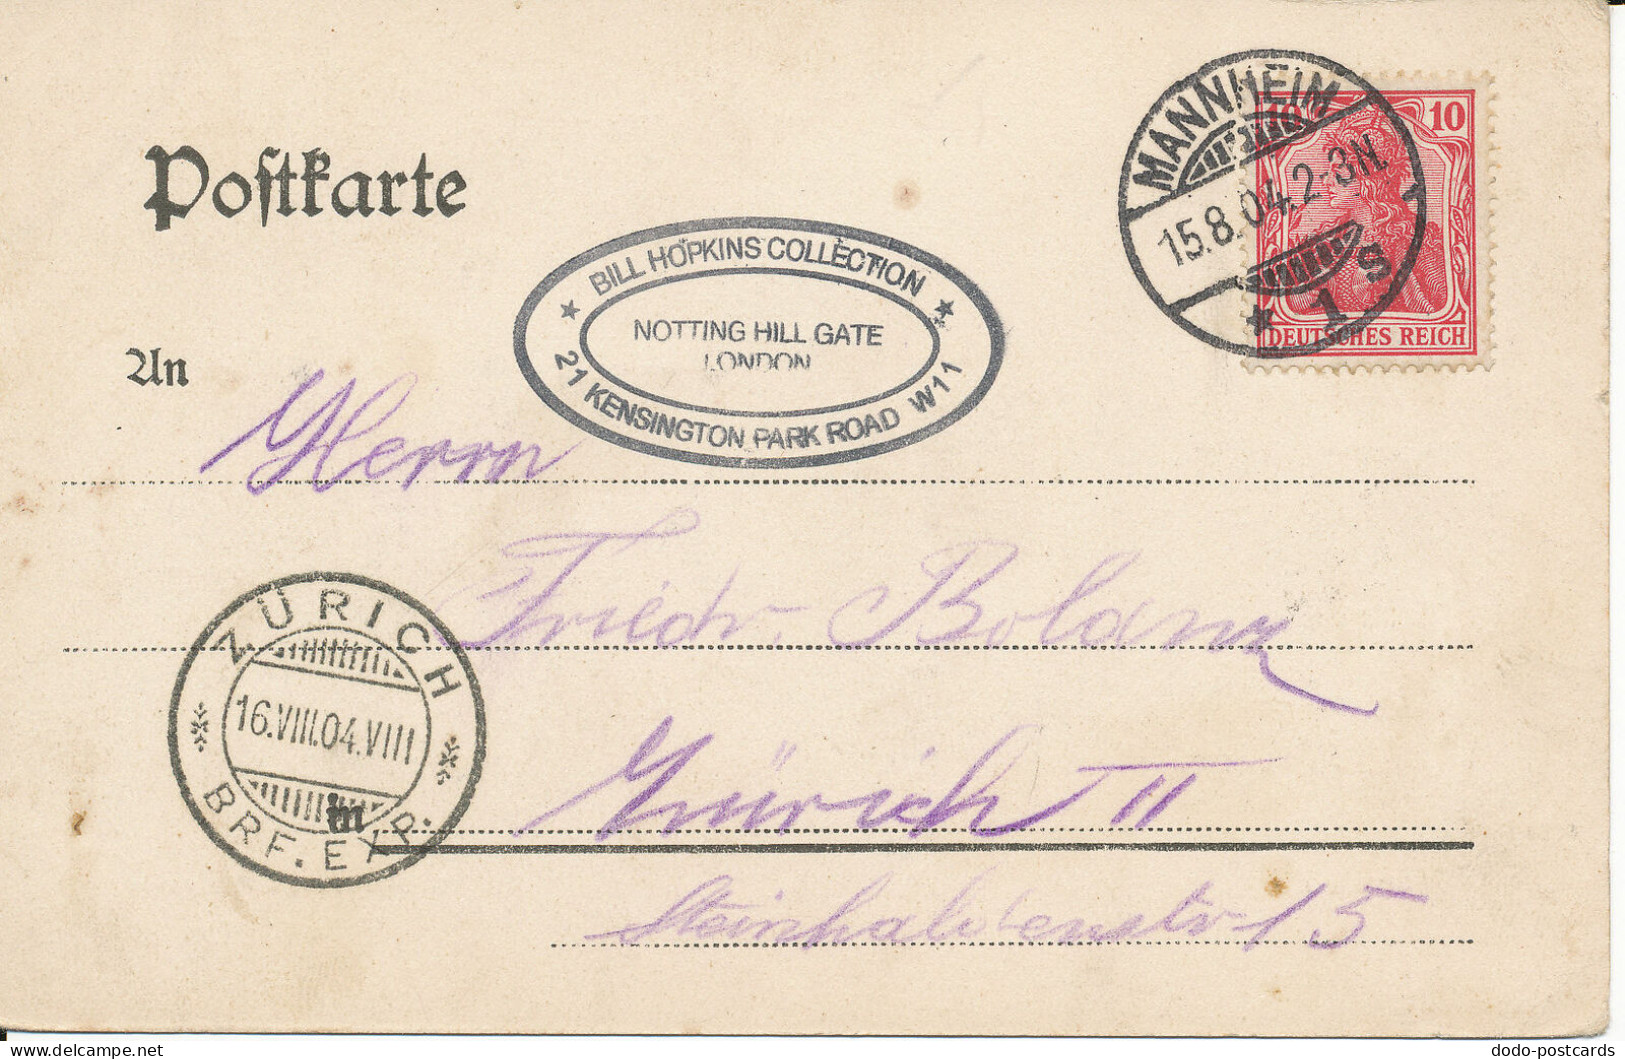 Postkarte
MANNHEIM
15.8.04.2-3N.
* 1 S
10 10
DEUTSCHES REICH
★ BILL HOPKINS COLLECTION ★
NOTTING HILL GATE
LONDON
21 KENSINGTON PARK ROAD W11
An
Herrn
Friedr. Bolanz
ZÜRICH
16.VIII.04.VIII
BRF. EXP.
in
Zürich II
Steinhaldenstr 15
delcampe.net
dodo-postcards